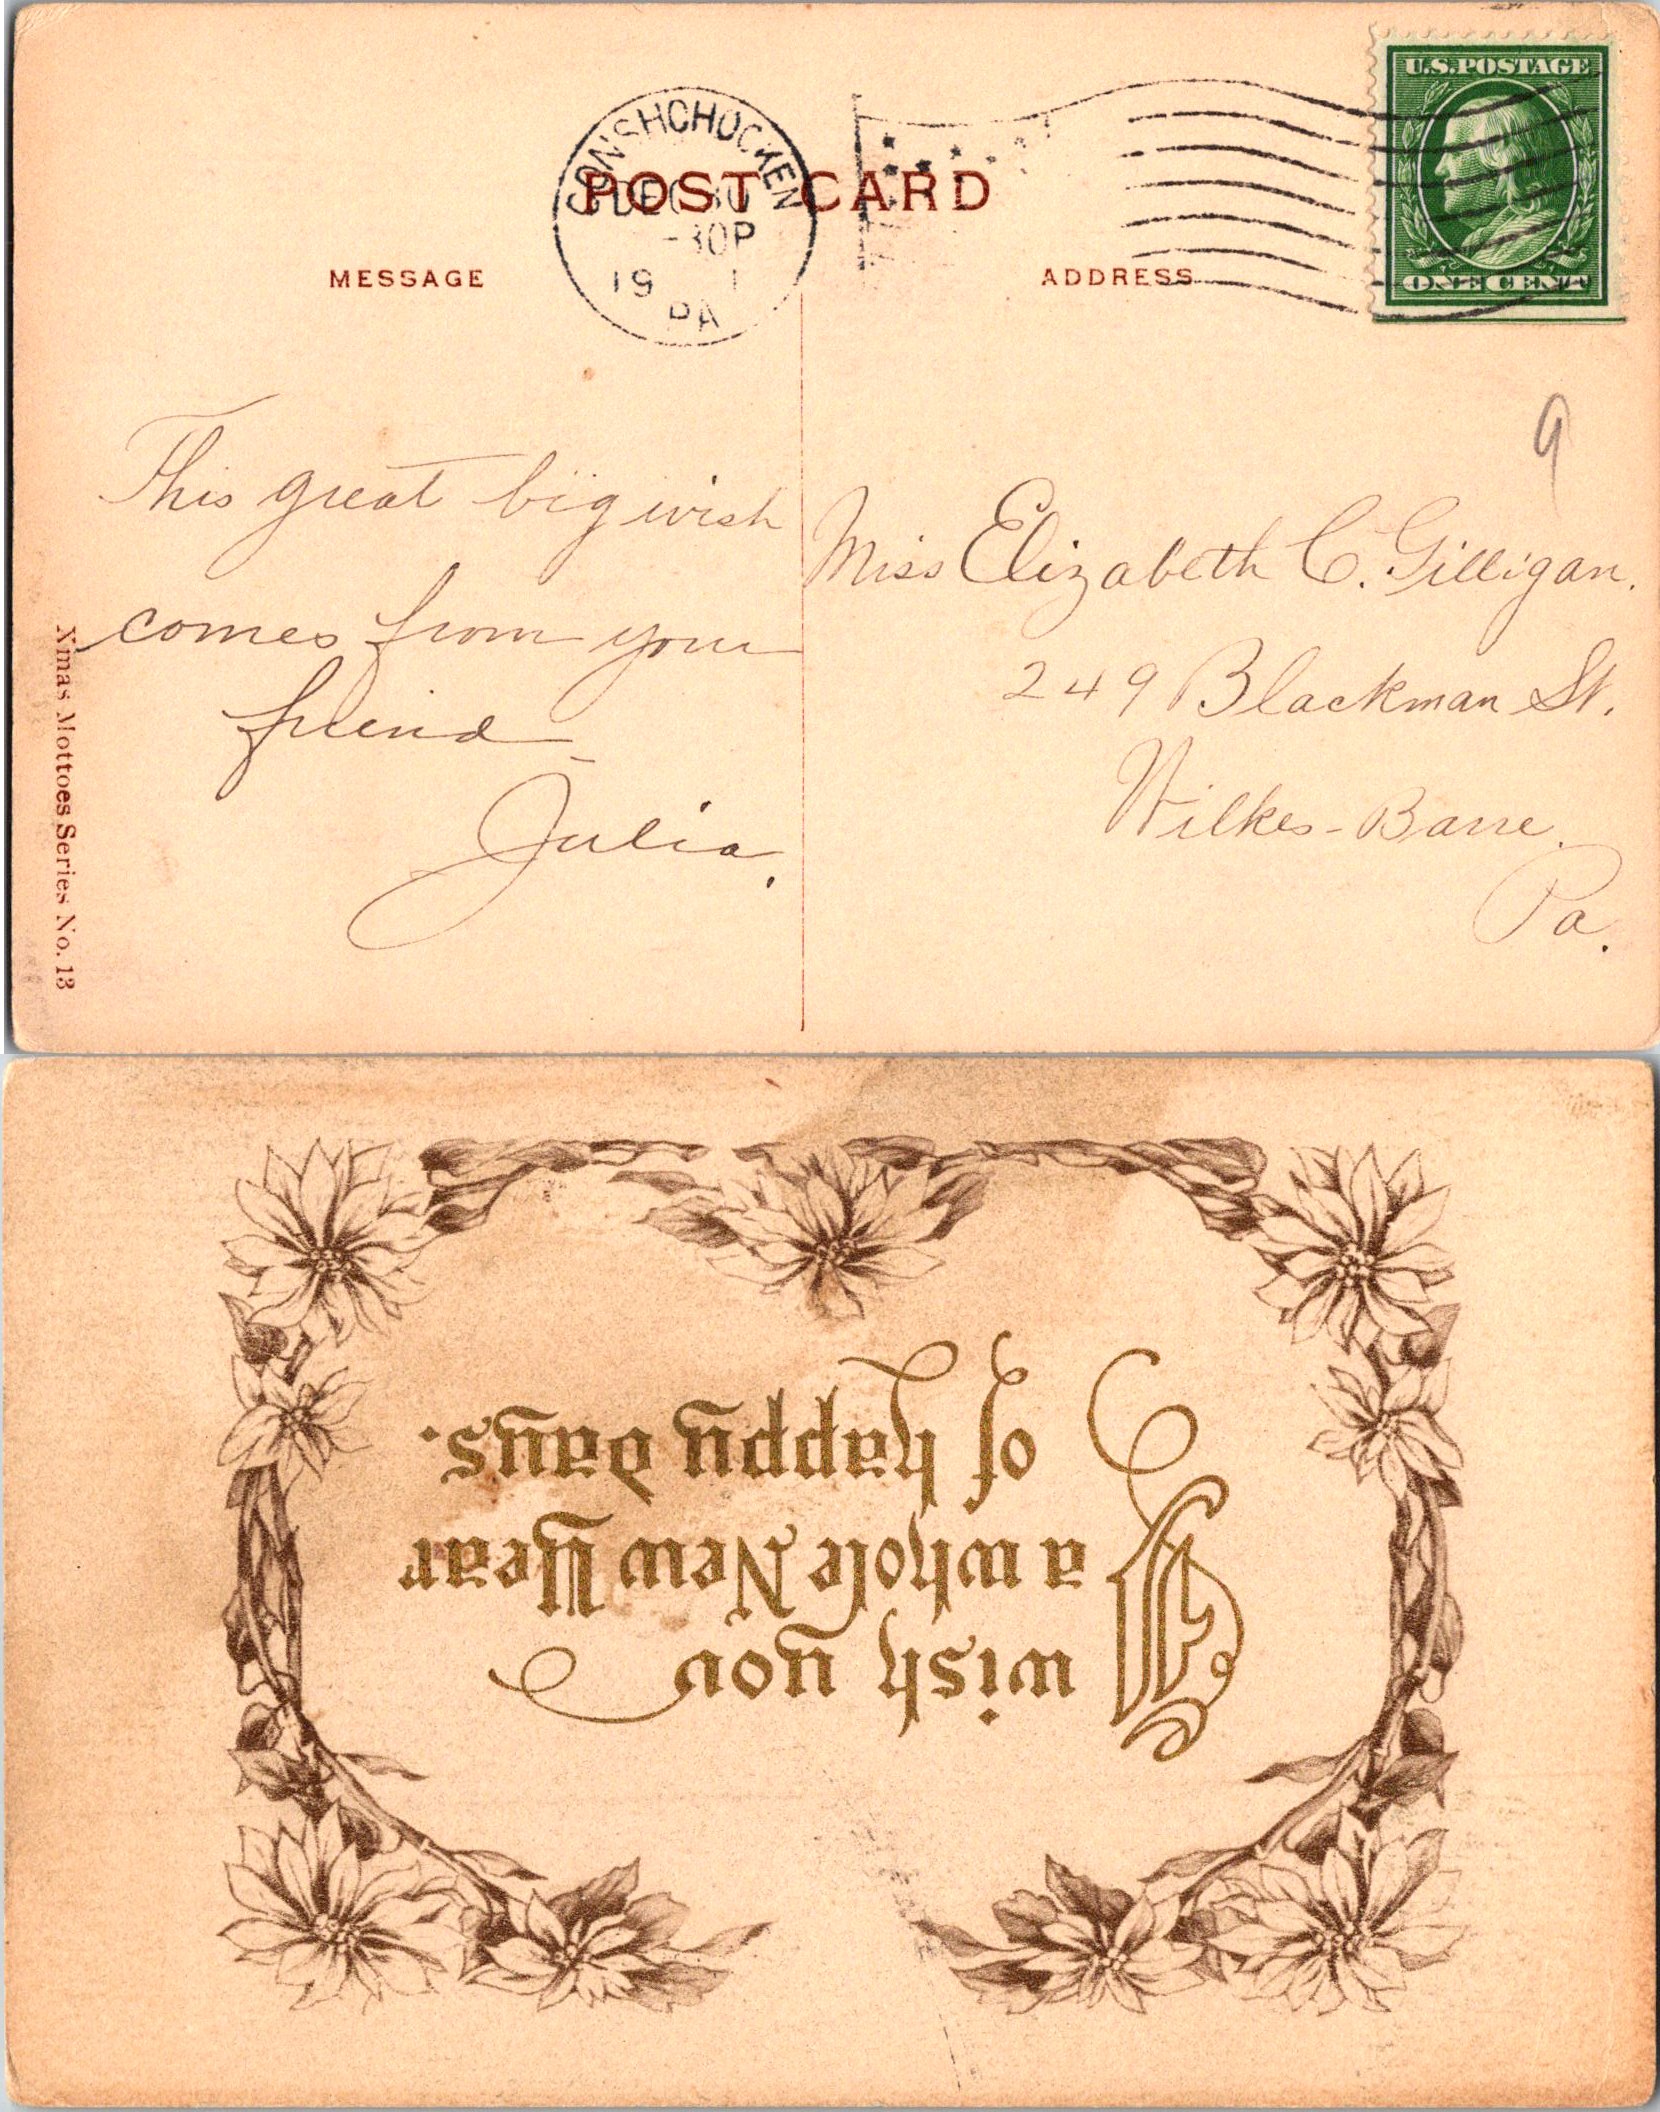 U.S. POSTAGE
ONE CENT
CONSHOHOCKEN
DEC 30
-30P
19 1
PA
POST CARD
MESSAGE
ADDRESS
9
This great big wish
comes from your
friend
Julia.
Miss Elizabeth C. Gilligan.
249 Blackman St.
Wilkes-Barre.
Pa.
Xmas Mottoes Series No. 13
I wish you
a whole New Year
of happy days.